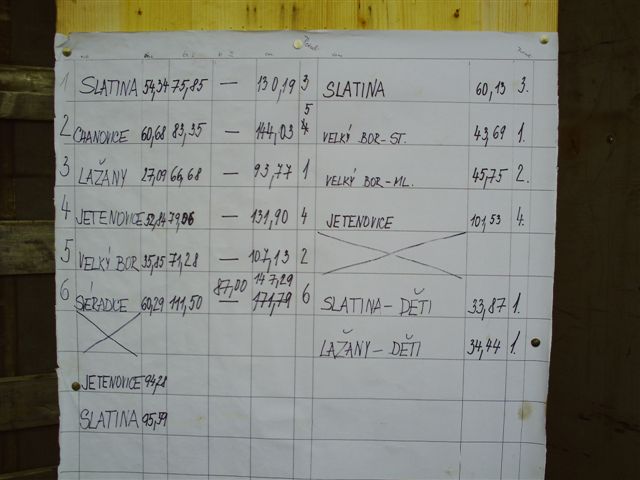 1 SLATINA 54,34 75,85 — 130,19 3 SLATINA 60,13 3.
2 CHANOVICE 60,68 83,35 — 144,03 5 VELKÝ BOR-ST. 43,69 1.
3 LAŽANY 27,09 66,68 — 93,77 1 VELKÝ BOR-ML. 45,75 2.
4 JETENOVICE 52,84 79,06 — 131,90 4 JETENOVICE 101,53 4.
5 VELKÝ BOR 35,85 71,28 — 107,13 2
6 SIERADCE 60,29 111,50 87,00 — 147,29 171,79 6 SLATINA-DĚTI 33,87 1.
LAŽANY-DĚTI 34,44 1.
JETENOVICE 94,28
SLATINA 95,59